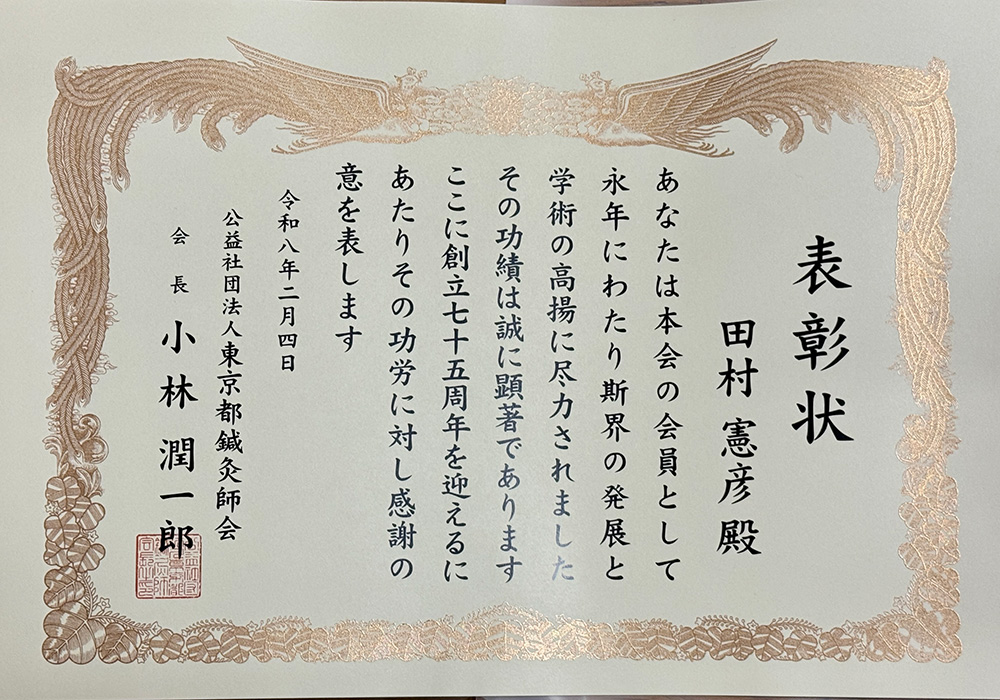 表彰状
田村憲彦殿
あなたは本会の会員として
永年にわたり斯界の発展と
学術の高揚に尽力されました
その功績は誠に顕著であります
ここに創立七十五周年を迎えるに
あたりその功労に対し感謝の
意を表します
令和八年二月四日
公益社団法人東京都鍼灸師会
会長 小林潤一郎